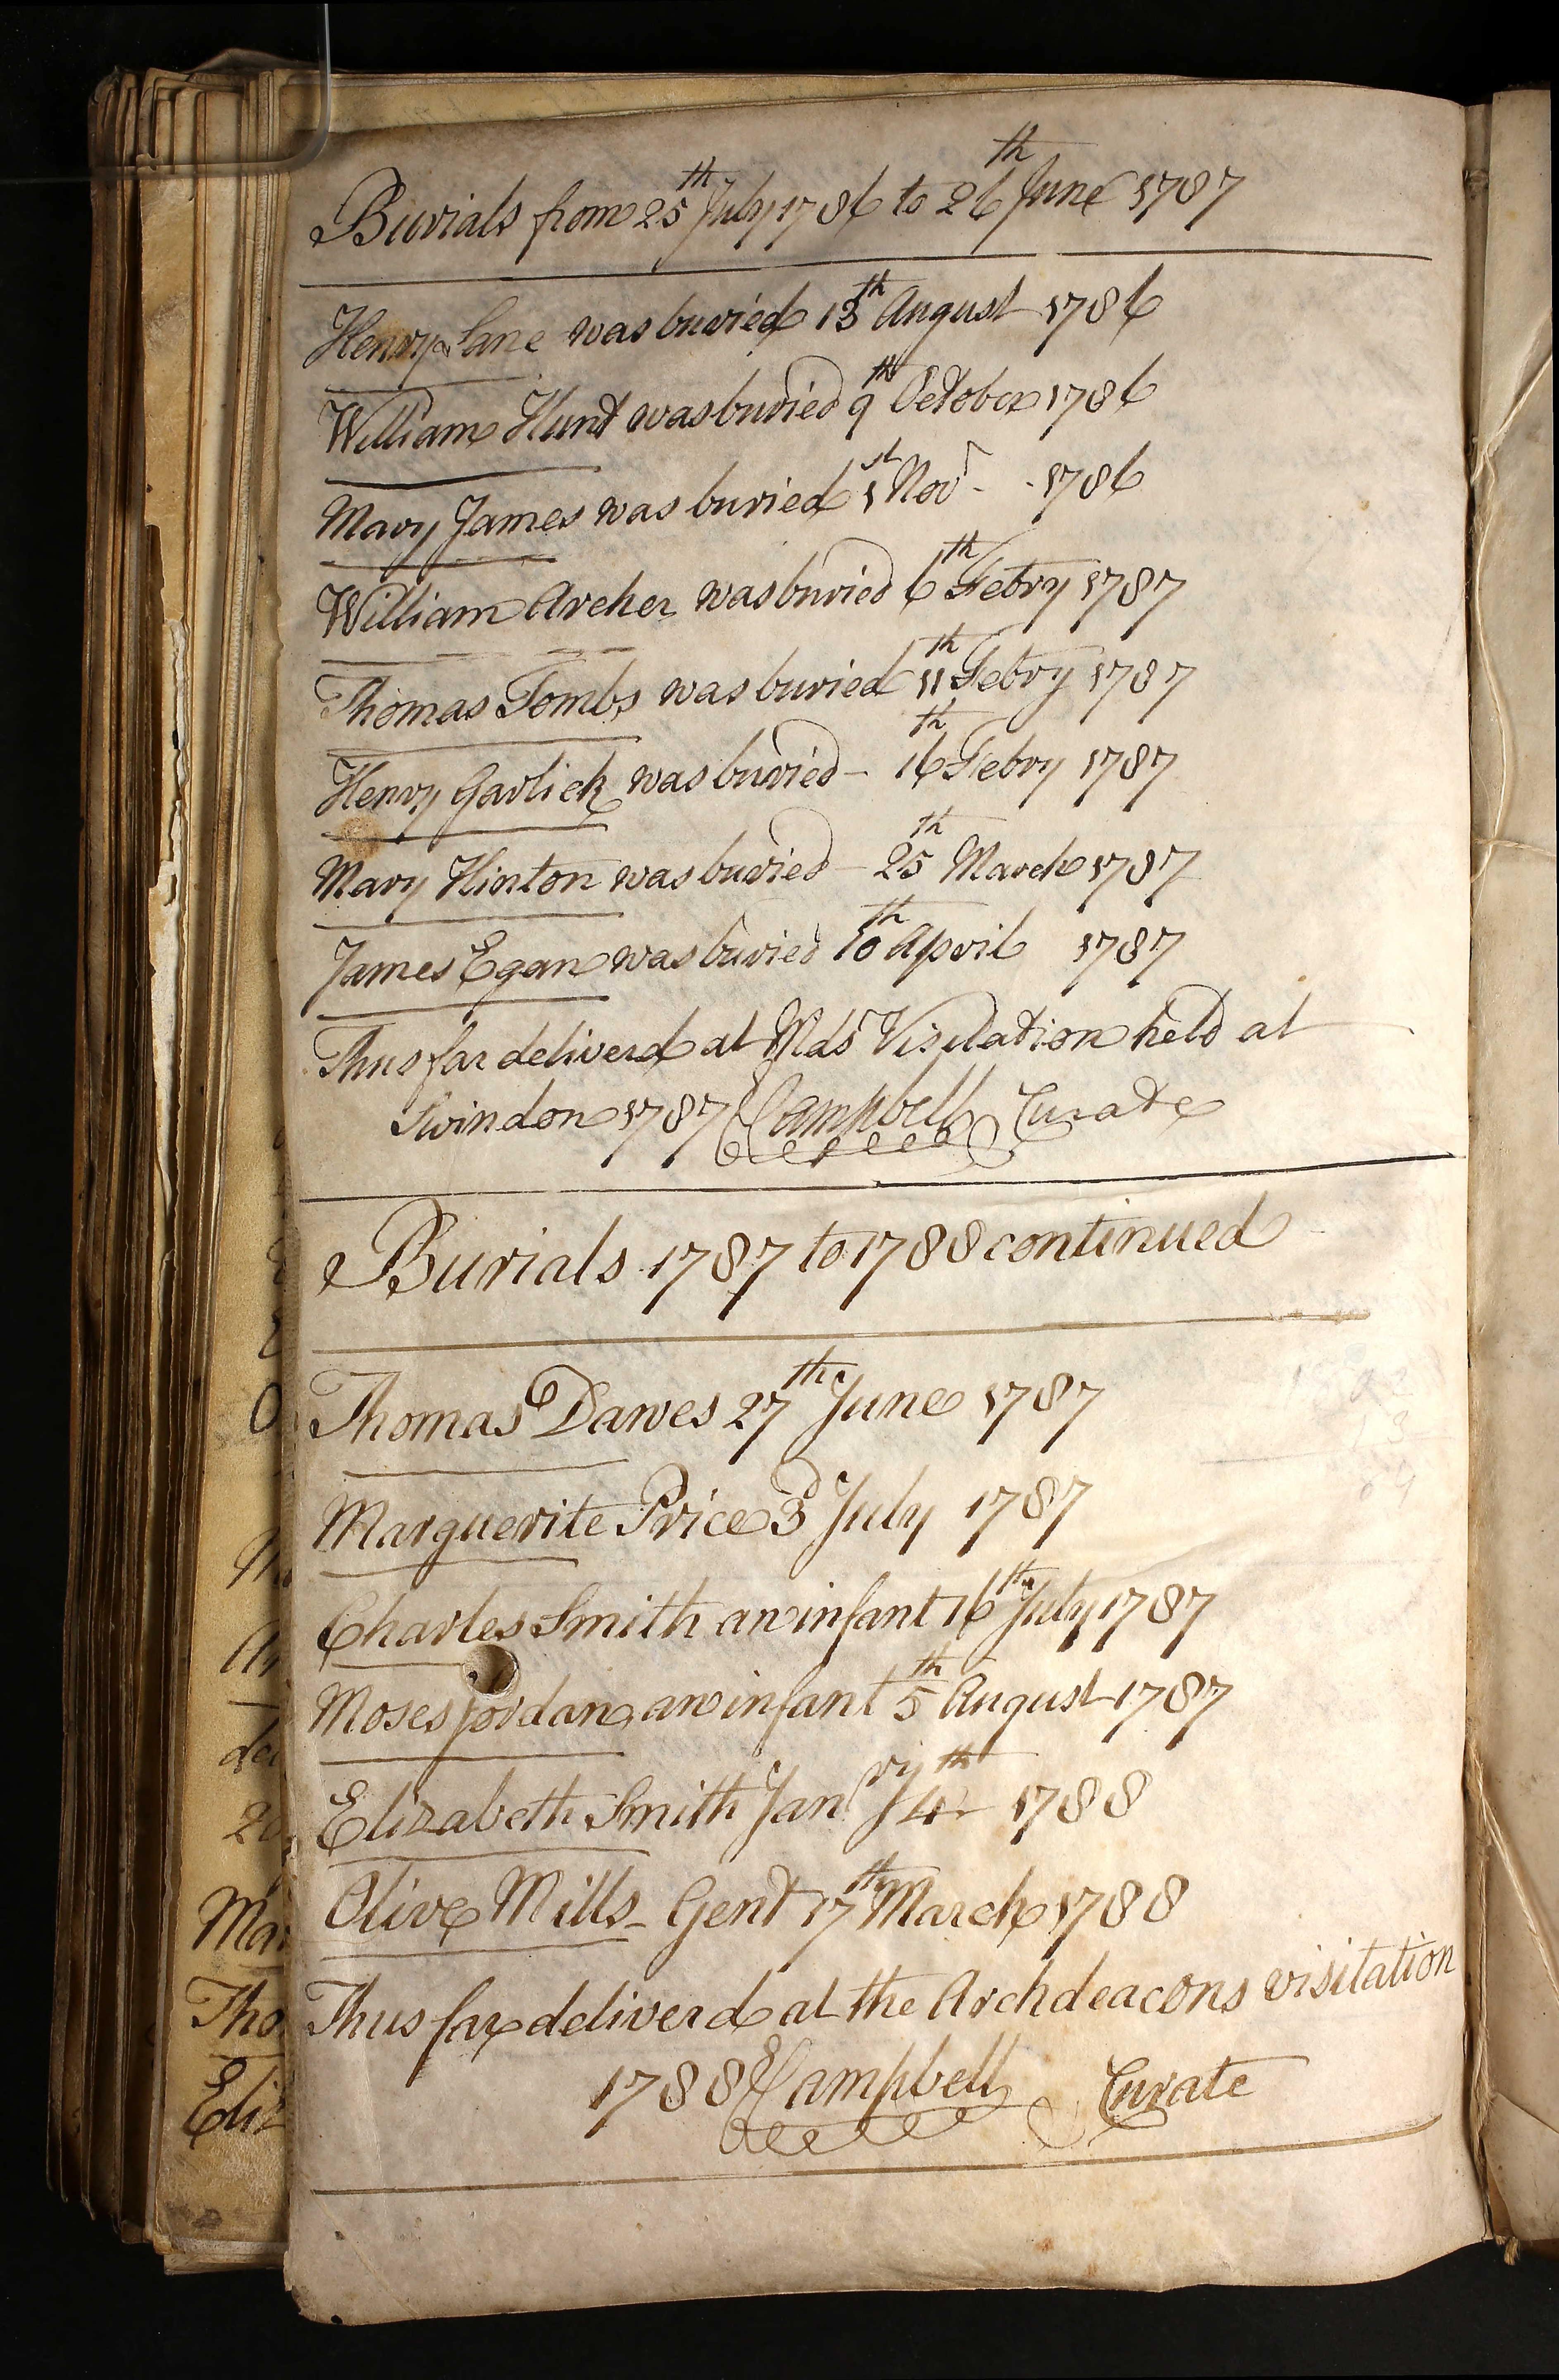 Burials from 25th July 1786 to 26th June 1787
Henry Lane was buried 13th August 1786
William Hunt was buried 9th October 1786
Mary James was buried 1st Novr - - 1786
William Archer was buried 6th Febry 1787
Thomas Tombs was buried 11th Febry 1787
Henry Garlick was buried - 16th Febry 1787
Mary Hinton was buried - 25th March 1787
James Egan was buried 10th April 1787
Thus far deliverd at Visitation held at
Swindon 1787 Campbell Curate
Burials 1787 to 1788 continued
Thomas Dawes 27th June 1787
Marguerite Price 3d July 1787
Charles Smith an infant 16th July 1787
Moses Jordan an infant 5th August 1787
Elizabeth Smith Janry 4th 1788
Olive Mills - Gent 17th March 1788
Thus far deliverd at the Archdeacons visitation
1788 Campbell Curate